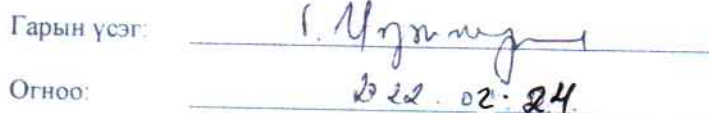 Гарын үсэг:
Огноо: 2022.02.24.